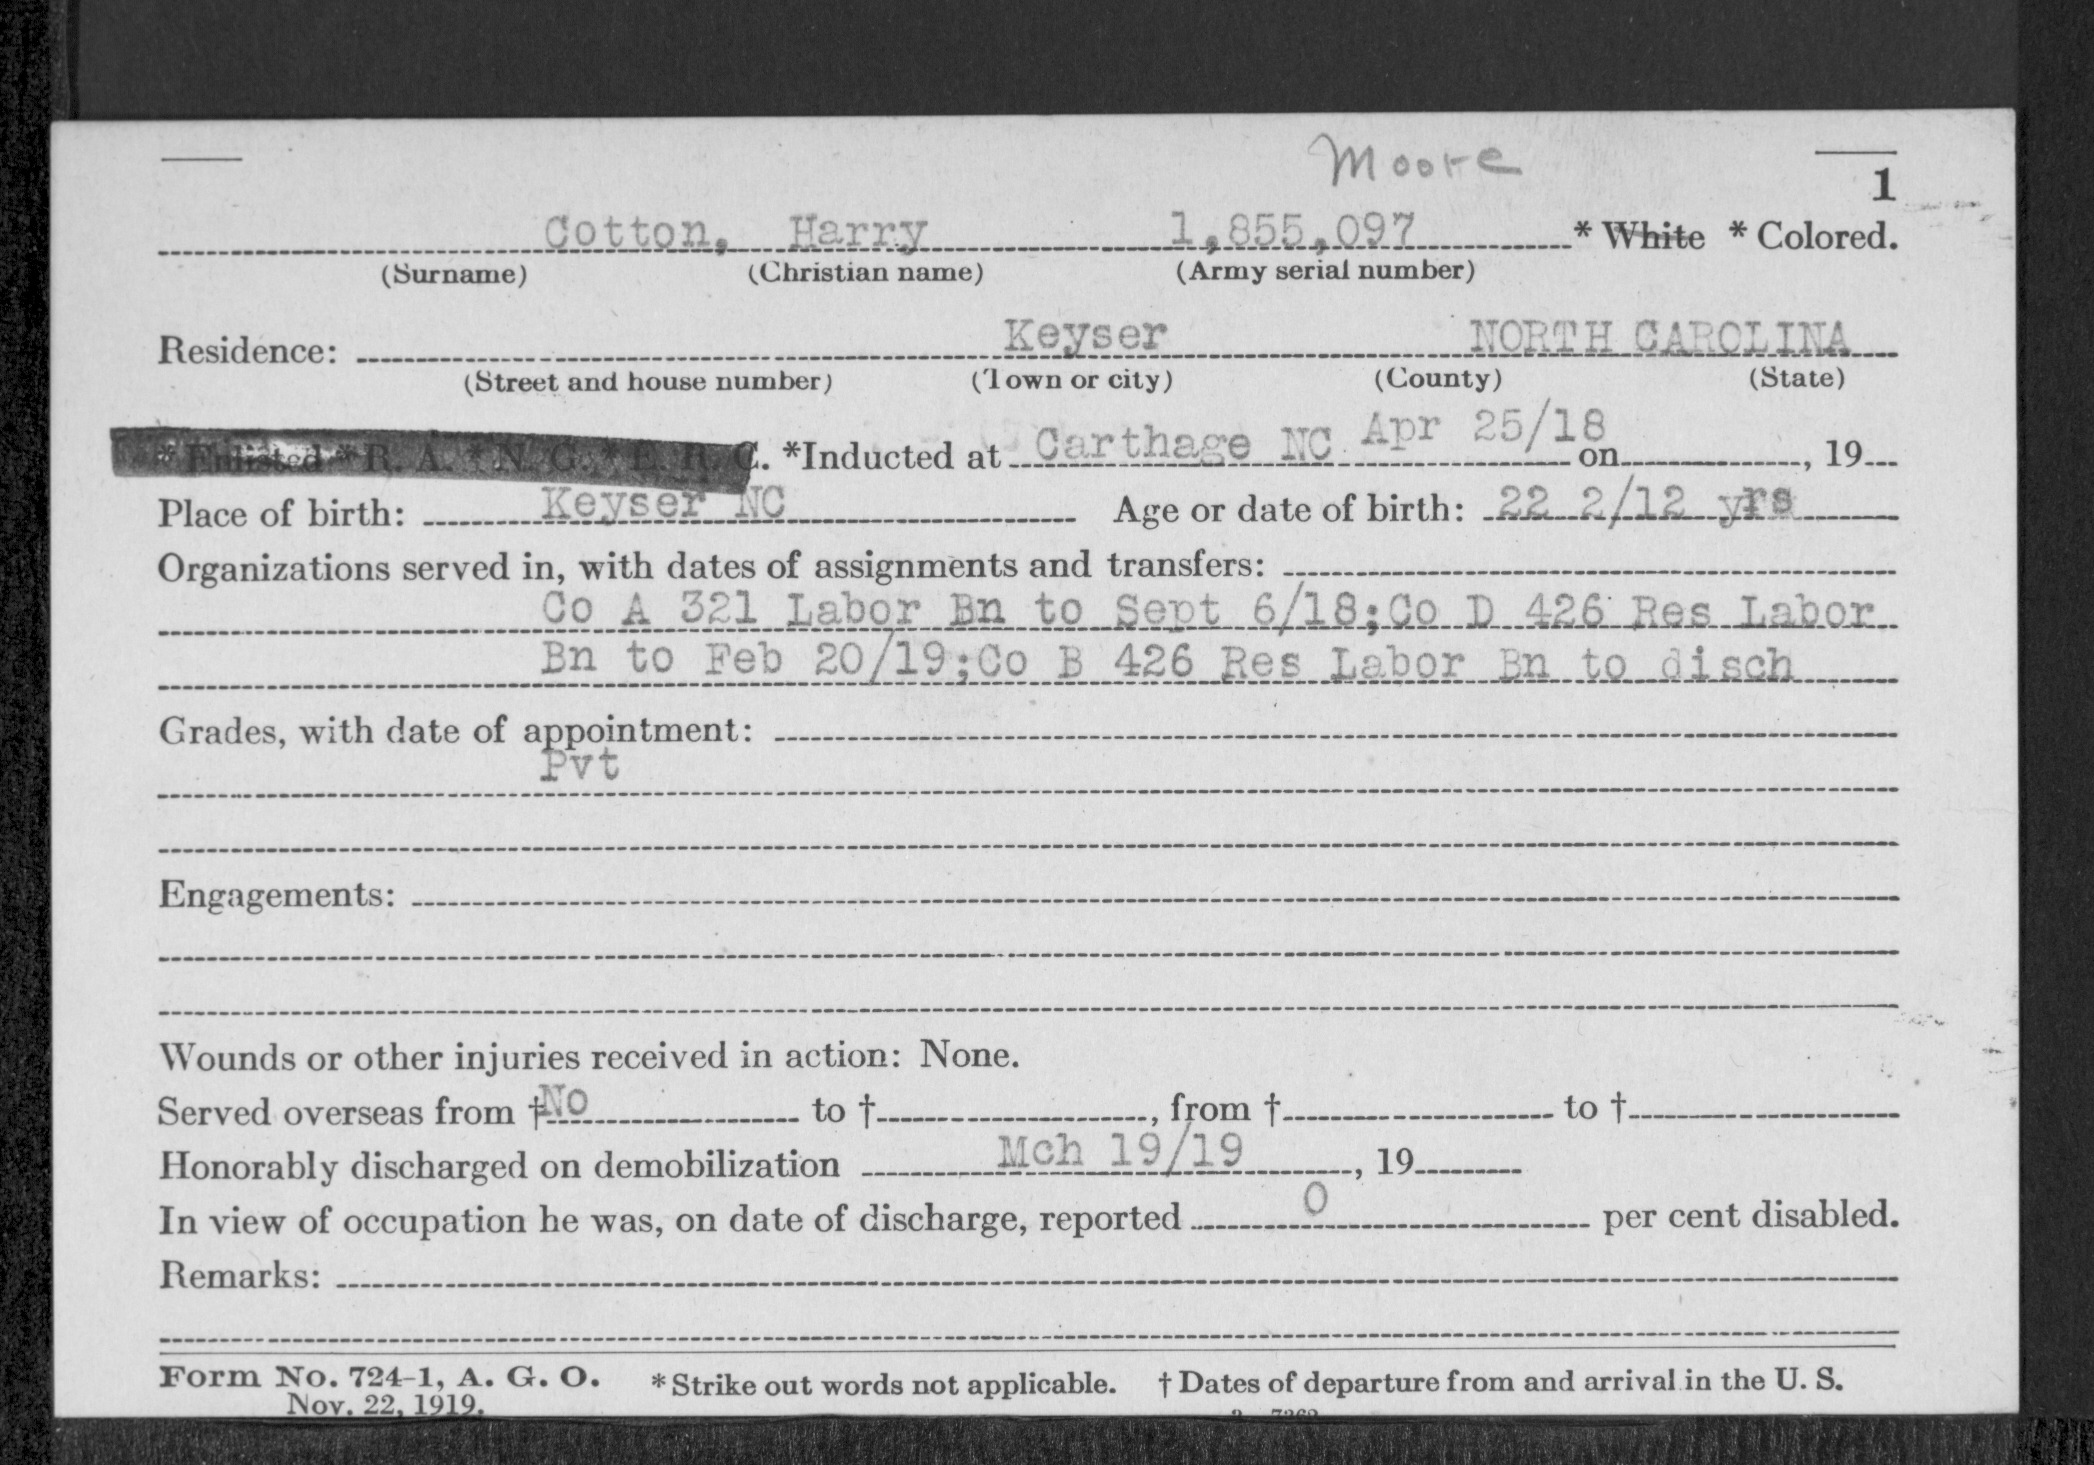 Moore
1
Cotton, Harry 1,855,097 * White * Colored.
(Surname) (Christian name) (Army serial number)
Residence: Keyser NORTH CAROLINA
(Street and house number) (Town or city) (County) (State)
* Enlisted * R. A. * N. G. * E. R. C. *Inducted at Carthage NC Apr 25/18 on , 19
Place of birth: Keyser NC Age or date of birth: 22 2/12 yrs
Organizations served in, with dates of assignments and transfers:
Co A 321 Labor Bn to Sept 6/18;Co D 426 Res Labor
Bn to Feb 20/19;Co B 426 Res Labor Bn to disch
Grades, with date of appointment:
Pvt
Engagements:
Wounds or other injuries received in action: None.
Served overseas from † No to † , from † to †
Honorably discharged on demobilization Mch 19/19 , 19
In view of occupation he was, on date of discharge, reported 0 per cent disabled.
Remarks:
Form No. 724-1, A. G. O. * Strike out words not applicable. † Dates of departure from and arrival in the U. S.
Nov. 22, 1919.